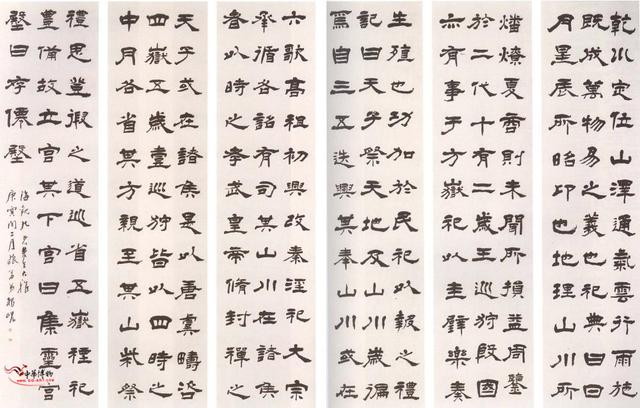 乾川定位山澤通氣雲行雨施
既成萬物易之義也祀典曰日
月星辰所昭卬也地理山川所
燔燎夏商則未聞所損益周鑒
於二代十有二歲王巡狩殷國
亦有事于方嶽祀以圭璧樂奏
生殖也功加於民祀以報之禮
記曰天子祭天地及山川歲徧
焉自三五迭興其奉山川或在
六歌高祖初興改秦淫祀大宗
承循各詔有司其山川在諸侯
者以時之孝武皇帝脩封禪之
天子或在諸侯是以唐虞疇咨
四嶽五歲壹巡狩皆以四時之
中月各省其方親至其山柴祭
禮思登假之道巡省五嶽禋祀
豐備故立宮其下宮曰集靈宮
壂曰存僊壂
庚寅閏二月
中華博物